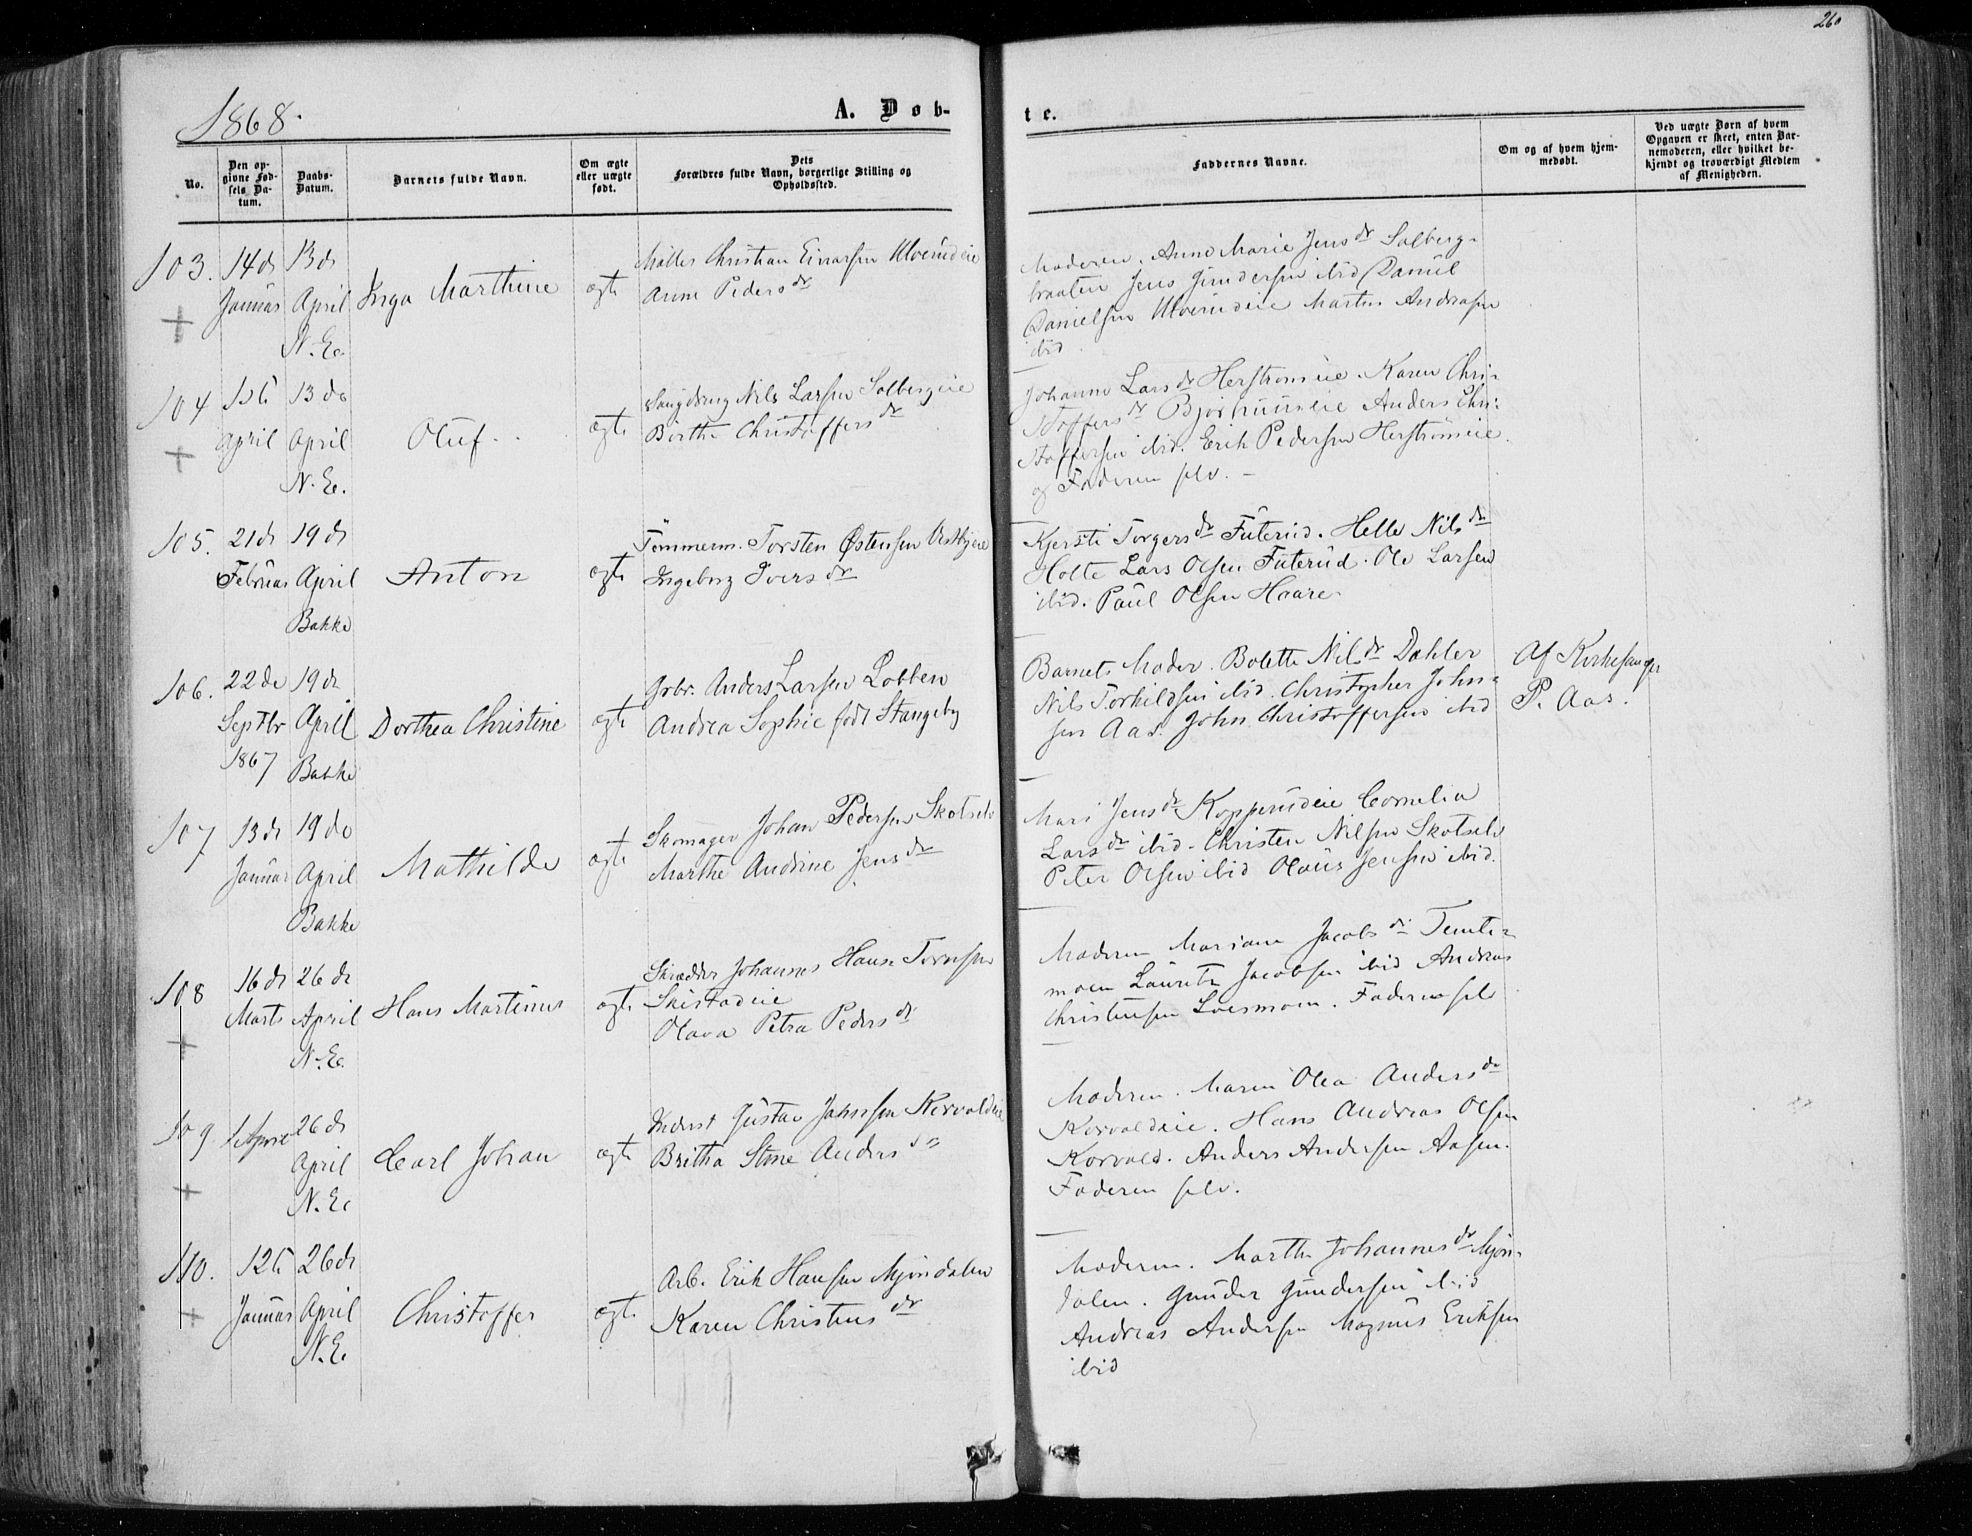 260
1868.
A. Døb-
te.
No.
Den op-
givne Fød-
sels Da-
tum.
Daabs-
Datum.
Barnets fulde Navn.
Om ægte
eller uægte
født.
Dets
Forældres fulde Navn, borgerlige Stilling og
Opholdssted.
Faddernes Navne.
Om og af hvem hjem-
medøbt.
Ved uægte Børn af hvem
Opgaven er skeet, enten Bar-
nemoderen, eller hvilket be-
kjendt og troværdigt Medlem
af Menigheden.
103.
14de
Januar
13de
April
N. E.
Inga Marthine
ægte
Møller Christian Einarsen Ulverudeie
Anne Pedersdr
Moderen. Anne Marie Jensdr Solberg-
braaten Jens Gundersen ibid Daniel
Danielsen Ulverudeie Martin Andreasen
ibid.
104
1ste
April
13de
April
N. E.
Oluf.
ægte
Nils Larsen Solbergeie
Birthe Christoffersdr
Johanne Larsdr Herstrømeie. Karen Chri-
stoffersdr Anders Chri-
stoffersen ibid. Erik Pedersen Herstrømeie
og Faderen selv. -
105.
21de
Februar
19de
April
Bakke
Anton
ægte
Tømmerm. Torsten Østensen
Ingeborg Iversdr
Kjersti Torgersdr Futerud. Helle Nilsdr
Holte Lars Olsen Futerud. Ole Larsen
ibid. Paul Olsen Haare.
106.
22de
Septbr
1867
19de
April
Bakke
Dorthea Christine
ægte
Grbr. Anders Larsen Lobben
Andrea Sophie født Stangeby
Barnets Moder. Bolette Nilsdr Dahler
Nils Torkildsen ibid. Christopher John-
sen Aas. John Christoffersen ibid
Af Kirkesanger
P. Aas.
107
13de
Januar
19de
April
Bakke
Mathilde
ægte
Skomager Johan Pedersen Skotselv
Marthe Andrine Jensdr
Mari Jensdr Kopperudeie Cornelia
Larsdr ibid. Christen Nilsen Skotselv
Peter Olsen ibid Olaus Jensen ibid.
108
16de
Marts
26de
April
N. E.
Hans Martinus
ægte
Skrædder Johannes Hans
Skistadeie
Olava Petra Pedersdr
Moderen Mariane Jacobsdr Temte-
moen Lauritz Jacobsen ibid Andreas
Christensen Loesmoen. Faderen selv
109
1 April
26de
April
N. E.
Carl Johan
ægte
Inderst Gustav Korvaldeie
Britha Stine Andersdr
Moderen. Maren Olea Andersdr
Korvaldeie. Hans Andreas Olsen
Korvald. Anders Andersen Aasen.
Faderen selv.
110.
12te
Januar
26de
April
N. E.
Christoffer
ægte
Arb. Erik Hansen Mjøndalen
Karen Christensdr
Moderen. Marthe Johannesdr Mjøn-
dalen. Gunder Gundersen ibid
Andreas Andersen Magnus Eriksen
ibid